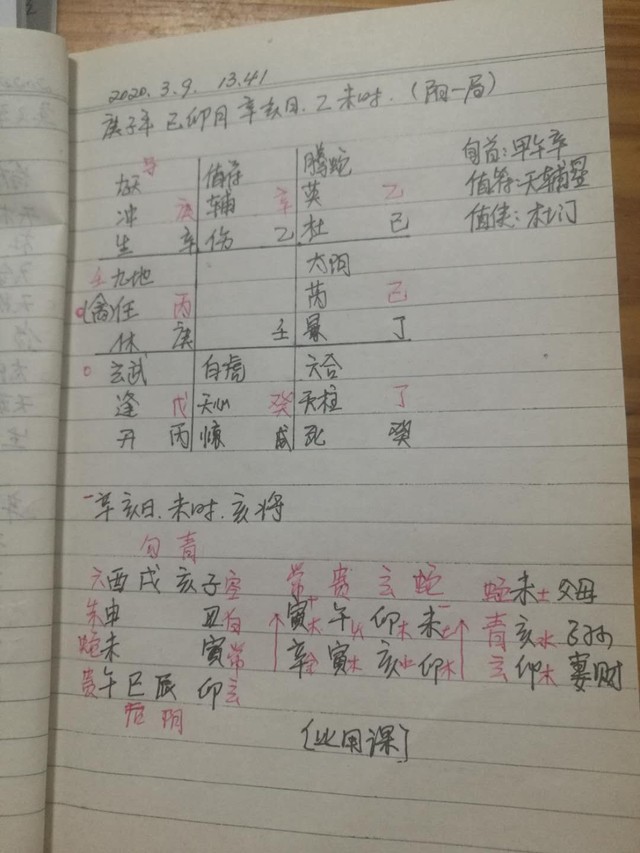 2020.3.9. 13.41
庚子年 己卯月 辛亥日. 乙未时. (阳一局)
九天 马 值符 腾蛇 旬首: 甲午辛
冲 庚 辅 辛 英 乙 值符: 天辅星
生 辛 伤 乙 杜 己 值使: 杜门
壬 九地 太阴
(禽)任 丙 芮 己
休 庚 壬 景 丁
玄武 白虎 六合
逢 戊 天心 癸 天柱 丁
开 丙 惊 戊 死 癸
辛亥日. 未时. 亥将
勾 青
六 酉 戌 亥 子 空 常 贵 玄 蛇 蛇 未 土 父母
朱 申 丑 白 寅木 午火 卯木 未土 青 亥 水 子孙
蛇 未 寅 常 辛金 寅木 亥水 卯木 玄 卯 木 妻财
贵 午 巳 辰 卯 玄
后 阴
[比用课]